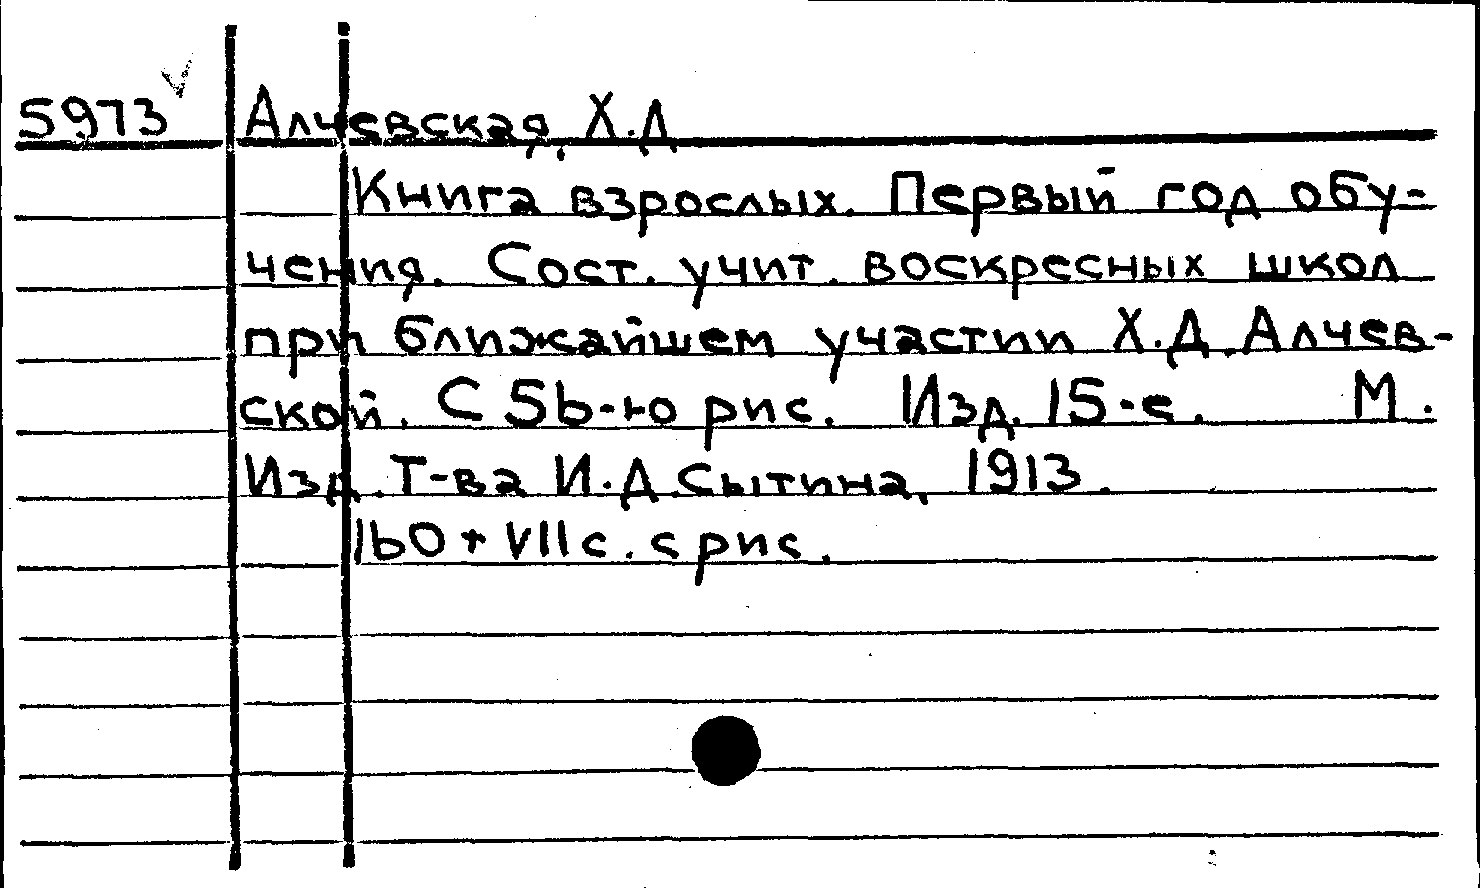 5973 Алчевская, Х.Д
Книга взрослых. Первый год обу-
чения. Сост. учит. воскресных школ
при ближайшем участии Х.Д. Алчев-
ской. С 56-ю рис. Изд. 15-е. М.
Изд. Т-ва И.Д. Сытина, 1913.
160 + VII с. с рис.